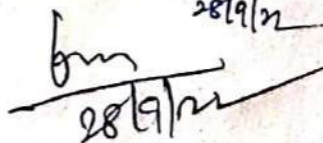 28/9/22
28/9/22